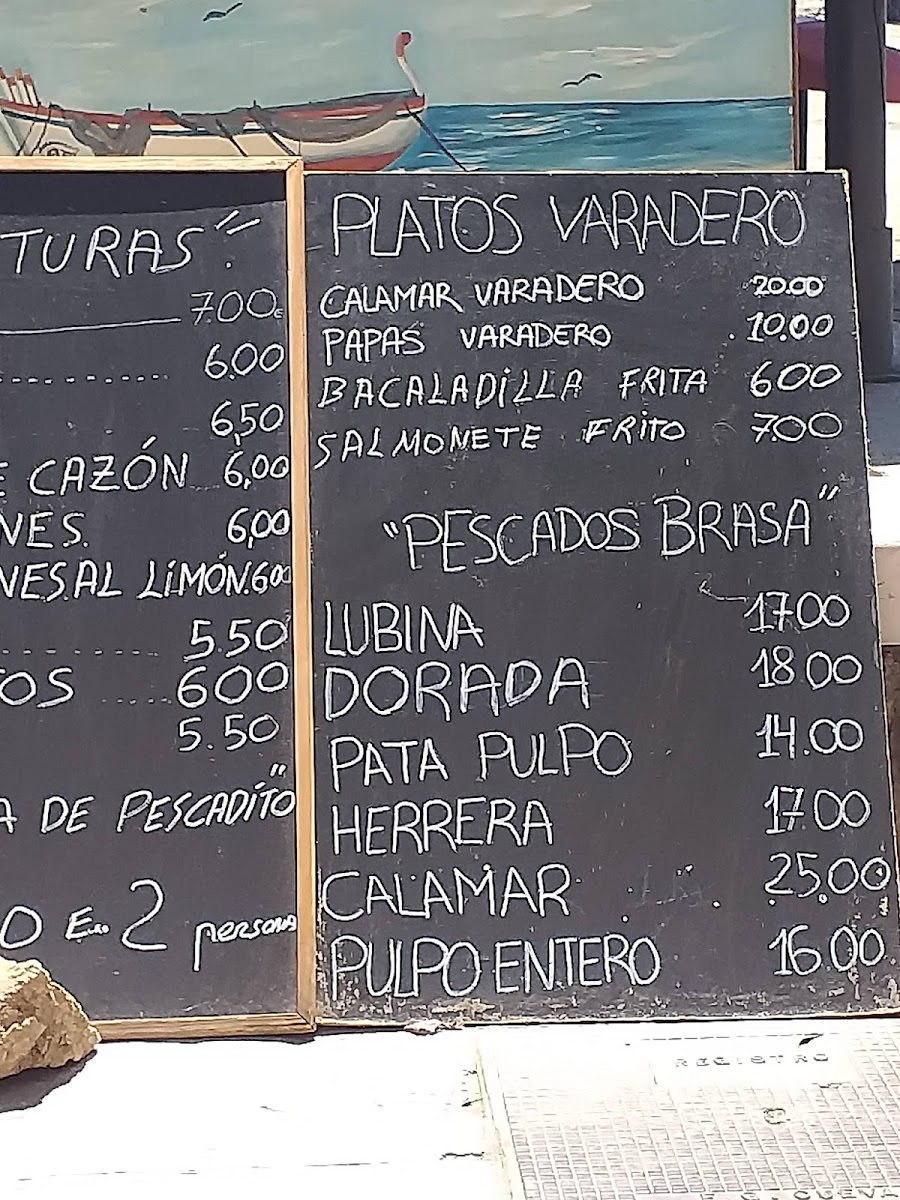 TURAS"
7.00€
6.00
6,50
E CAZÓN 6,00
NES. 6,00
NES AL LIMÓN. 6.00
5.50
TOS 6.00
5.50
A DE PESCADÍTO"
2 persona
PLATOS VARADERO
CALAMAR VARADERO 20.00
PAPAS VARADERO 10.00
BACALADILLA FRITA 6.00
SALMONETE FRITO 7.00
"PESCADOS BRASA"
LUBINA 17.00
DORADA 18.00
PATA PULPO 14.00
HERRERA 17.00
CALAMAR 25.00
PULPO ENTERO 16.00
REGISTRO